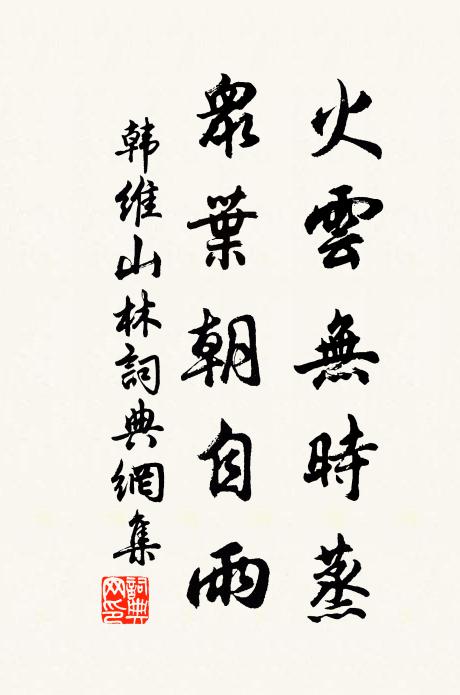 火雲無時蒸
眾葉朝自雨
韩維山林詞典網集
詞典网印